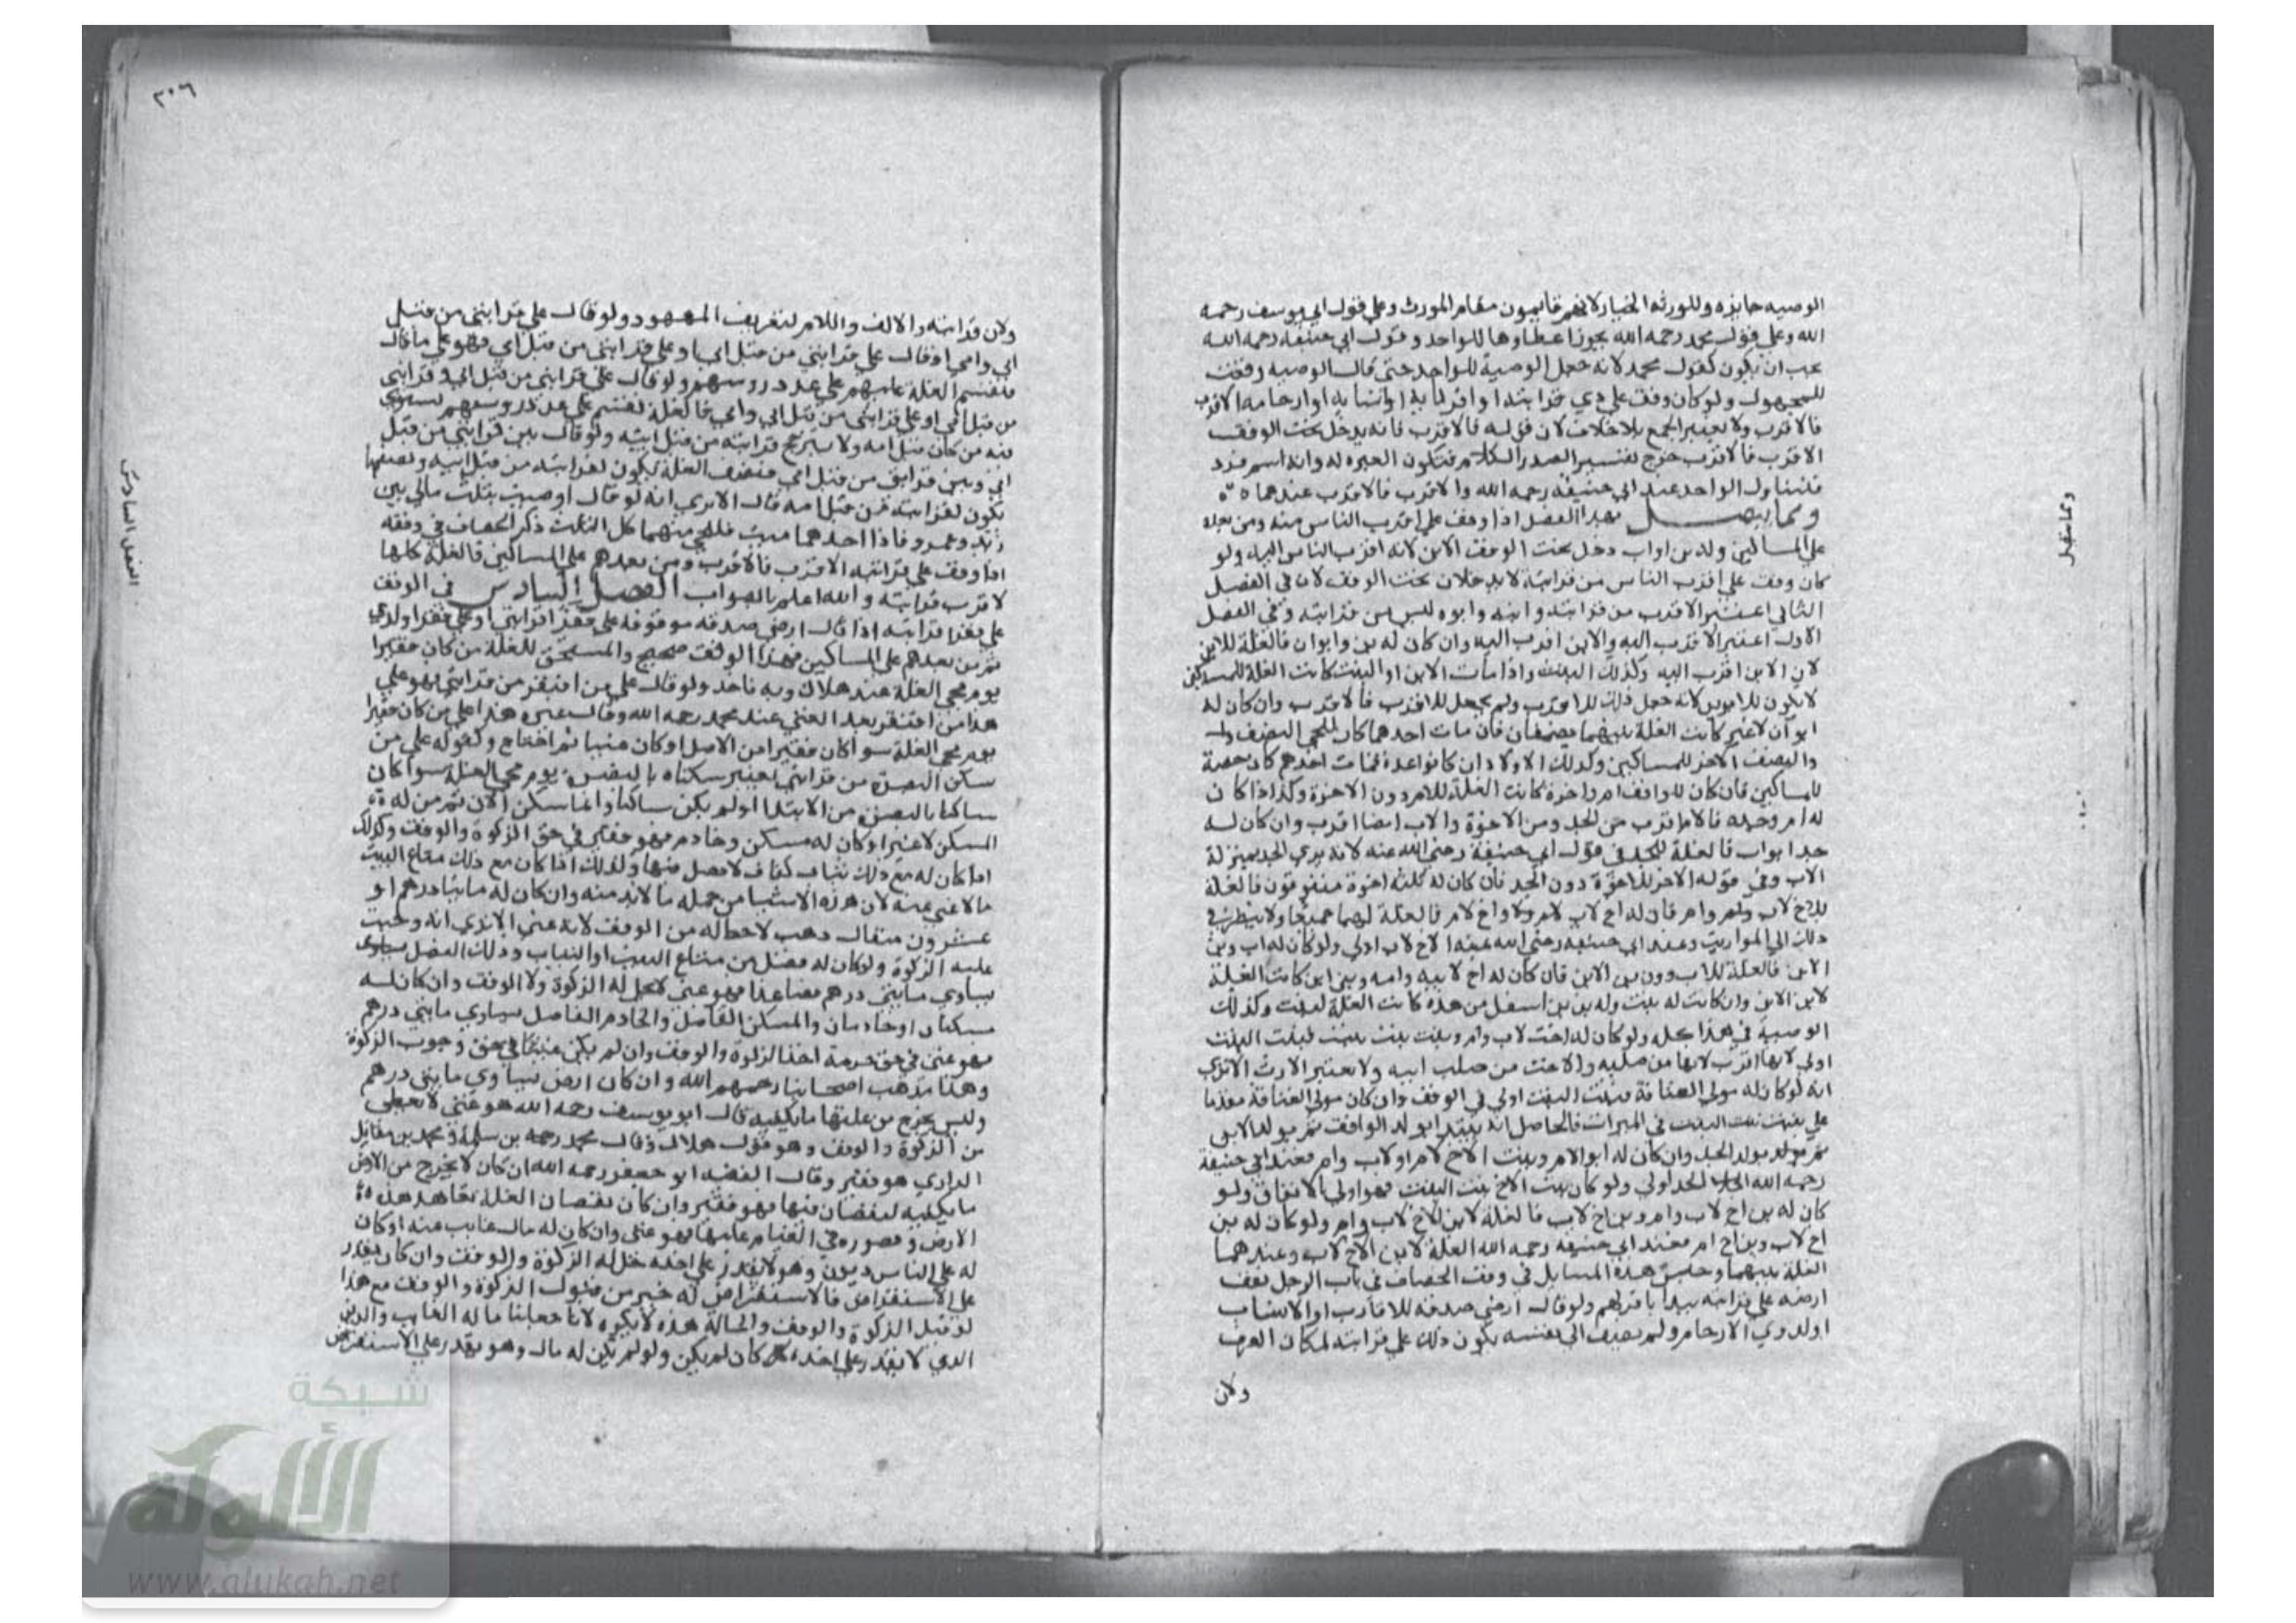 الوصيه جايزه وللورثه الخيار لانهم قايمون مقام المورث وعلي قول ابي يوسف رحمه
الله وعلي قول محمد رحمه الله يجوز اعطاوها للواحد و قول ابي حنيفه رحمه الله
يجب ان يكون كقول محمد لانه جعل الوصية للواحد حتى قال الوصيه وقعت
للمجهول ولو كان وقف علي ذي قرابته او اقربايه او انسابه او ارحامه الاقرب
فالاقرب ولا يعتبر الجمع بلا خلاف لان قوله فالاقرب فانه يدخل تحت الوقف
الاقرب فالاقرب خرج تفسير الصدر الكلام فتكون العبره له وانه اسم فرد
فتناول الواحد عند ابي حنيفه رحمه الله والاقرب فالاقرب عندهما
ومما يتصل بهذا الفصل اذا وقف علي اقرب الناس منه ومن بعده
علي المساكين وله ابن او اب دخل تحت الوقف الابن لانه اقرب الناس اليه ولو
كان وقف علي اقرب الناس من قرابته لا يدخلان تحت الوقف لان في الفصل
الثاني اعتبر الاقرب من قرابته وابنه وابوه ليس من قرابته وفي الفصل
الاول اعتبر الاقرب اليه والابن اقرب اليه وان كان له بن وابوان فالغلة للابن
لان الابن اقرب اليه وكذلك البنت واذا مات الابن او البنت كانت الغلة للمساكين
لا يكون للابوين لانه جعل ذلك للاقرب ولم يجعل للاقرب فالاقرب وان كان له
ابوان لا غير كانت الغلة بينهما نصفان فان مات احدهما كان للحي النصف
والنصف الاخر للمساكين وكذلك الاولاد ان كانوا عدة فمات احدهم كان حصة
للمساكين فان كان للواقف ام واخوة كانت الغلة للام دون الاخوة وكذا اذا كان
له ام وجد فالام اقرب من الجد ومن الاخوة والاب ايضا اقرب وان كان له
جد ابو اب فالغلة للجد في قول ابي حنيفة رضي الله عنه لانه يري الجد بمنزلة
الاب وفي قوله الاخر للاخوة دون الجد فان كان له ثلثه اخوة متفرقون فالغلة
للاخ لاب وام فان له اخ لاب واخ لام فالغلة لهما جميعا ولا ينظر في
ذلك الي المواريث وعند ابي حنيفه رضي الله عنه الاخ لاب اولي ولو كان له اب وبن
الابن فالغلة للاب دون بن الابن فان كان له اخ لابيه وامه وبن ابن كانت الغلة
لابن الابن وان كانت له بنت وله بن بن اسفل من هذه كانت الغلة لبنت وكذلك
الوصية في هذا كله ولو كان له اخت لاب وام وبنت بنت بنت فبنت البنت
اولي لانها اقرب لانها من صلبه والاخت من صلب ابيه ولا يعتبر الارث الا تري
انه لو كان له مولي العتاقة فبنت البنت اولي في الوقف وان كان مولي العتاقة مقدما
علي بنت البنت في الميراث فالحاصل انه يبتدا بولد الواقف ثم بولد الابن
ثم بولد الجد وان كان له ابو الام وبنت الاخ لام او لاب وام فعند ابي حنيفة
رحمه الله الجد اولي ولو كان بنت الاخ بنت البنت فهو اولي بالاتفاق ولو
كان له بن اخ لاب وام وبن اخ لاب فالغلة لابن الاخ لاب وام ولو كان له بن
اخ لاب وبن اخ ام فعند ابي حنيفه رحمه الله الغلة لابن الاخ لاب وعندهما
الغلة بينهما وجنس هذه المسايل في وقف الخصاف في باب الرجل يقف
ارضه علي قرابته يبدا باقربهم ولو قال ارضي صدقه للاقارب او الانساب
او لذوي الارحام ولم يضيف الي نفسه يكون ذلك علي قرابته لمكان العرف
ولان
ومما يتصل
٣٠٦
ولان قرابته والالف واللام لتعريف المعهود ولو قال علي قرابتي من قبل
ابي وامي او قال علي قرابتي من قبل ابي او علي قرابتي من قبل امي فهو علي ما قال
فتقسم الغلة عليهم علي عدد روسهم ولو قال علي قرابتي من قبل ابي وقرابتي
من قبل امي او علي قرابتي من قبل ابي وامي فالغلة تقسم علي عدد روسهم يستوي
فيه من كان قبل امه ولا يترجح قرابته من قبل ابيه ولو قال بين قرابتي من قبل
ابي وبين قرابتي من قبل امي فنصف الغلة يكون لقرابته من قبل ابيه ونصفها
يكون لقرابته من قبل امه قال الا تري انه لو قال اوصيت بثلث مالي بين
زيد وعمرو فاذا احدهما ميت فللحي منهما كل الثلث ذكر الخصاف في وقفه
اذا وقف علي قرابته الاقرب فالاقرب ومن بعدهم علي المساكين فالغلة كلها
لاقرب قرابته والله اعلم بالصواب الفصل السادس في الوقف
علي فقرا قرابته اذا قال ارضي صدقه موقوفه علي فقرا قرابتي او علي فقرا ولدي
ثم من بعدهم علي المساكين فهذا الوقف صحيح والمستحق للغلة من كان فقيرا
يوم مجي الغلة عند هلال وبه ناخذ ولو قال علي من افتقر من قرابتي فهو علي
هذا من افتقر بعد الغني عند محمد رحمه الله وقال غيره هذا علي من كان فقيرا
يوم مجي الغلة سوا كان فقيرا من الاصل او كان غنيا ثم احتاج وكقوله علي من
سكن البصرة من قرابتي يعتبر سكناه بالبصرة يوم مجي الغلة سوا كان
ساكنا بالبصرة من الابتدا او لم يكن ساكنا وانما سكن الان ثم من له
المسكن لا غير او كان له مسكن وخادم فهو فقير في حق الزكوة والوقف وكذلك
اذا كان له مع ذلك ثياب كفاف لا فضل فيها وكذلك اذا كان مع ذلك متاع البيت
ما لا غني عنه لان هذه الاشيا من جملة ما لا بد منه وان كان له مايتا درهم او
عشرون مثقال ذهب لا حظ له من الوقف لانه غني الا تري انه وجبت
عليه الزكوة ولو كان له فضل من متاع البيت او الثياب وذلك الفضل
يساوي مايتي درهم فصاعدا فهو غني لا تحل له الزكوة ولا الوقف وان كان له
مسكنان او خادمان والمسكن الفاضل والخادم الفاضل يساوي مايتي درهم
فهو غني في حق حرمة اخذ الزكوة والوقف وان لم يكن غنيا في حق وجوب الزكوة
وهذا مذهب اصحابنا رحمهم الله وان كان ارض يساوي مايتي درهم
وليس يخرج من غلتها ما يكفيه قال ابو يوسف رحمه الله هو غني لا يعطي
من الزكوة والوقف وهو قول هلال وقال محمد بن سلمة ومحمد بن مقاتل
الرازي هو فقير وقال الفقيه ابو جعفر رحمه الله ان كان لا يخرج من الارض
ما يكفيه لنقصان فيها فهو فقير وان كان نقصان الغلة
الارض وقصوره في القيام عليها فهو غني وان كان له مال غايب عنه او كان
له علي الناس ديون وهو لا يقدر علي اخذه حل له الزكوة والوقف وان كان يقدر
علي الاستقراض فالاستقراض له خير من قبول الزكوة والوقف مع هذا
لو قبل الزكوة والوقف والحالة هذه لا يكره لانا جعلنا ماله الغايب والدين
الذي لا يقدر علي اخذه كان لم يكن ولو لم يكن له مال وهو يقدر علي الاستقراض
الفصل السادس
شبكة
الألوكة
www.alukah.net